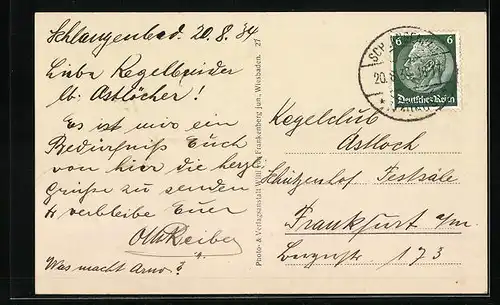 Schlangenbad. 20.8.34
Liebe Kegelbrüder
lb. Astlöcher!
Es ist mir ein
Bedürfniß Euch
von hier die herzl.
Grüße zu senden
u verbleibe Euer
Otto Reiber
Was macht Arno?
Photo- & Verlagsanstalt Willi von Frankenberg jun., Wiesbaden. 27
6 6
Deutsches Reich
20.8
Kegelclub
Astloch
Schützenhof Festsäle
Frankfurt a/m.
173